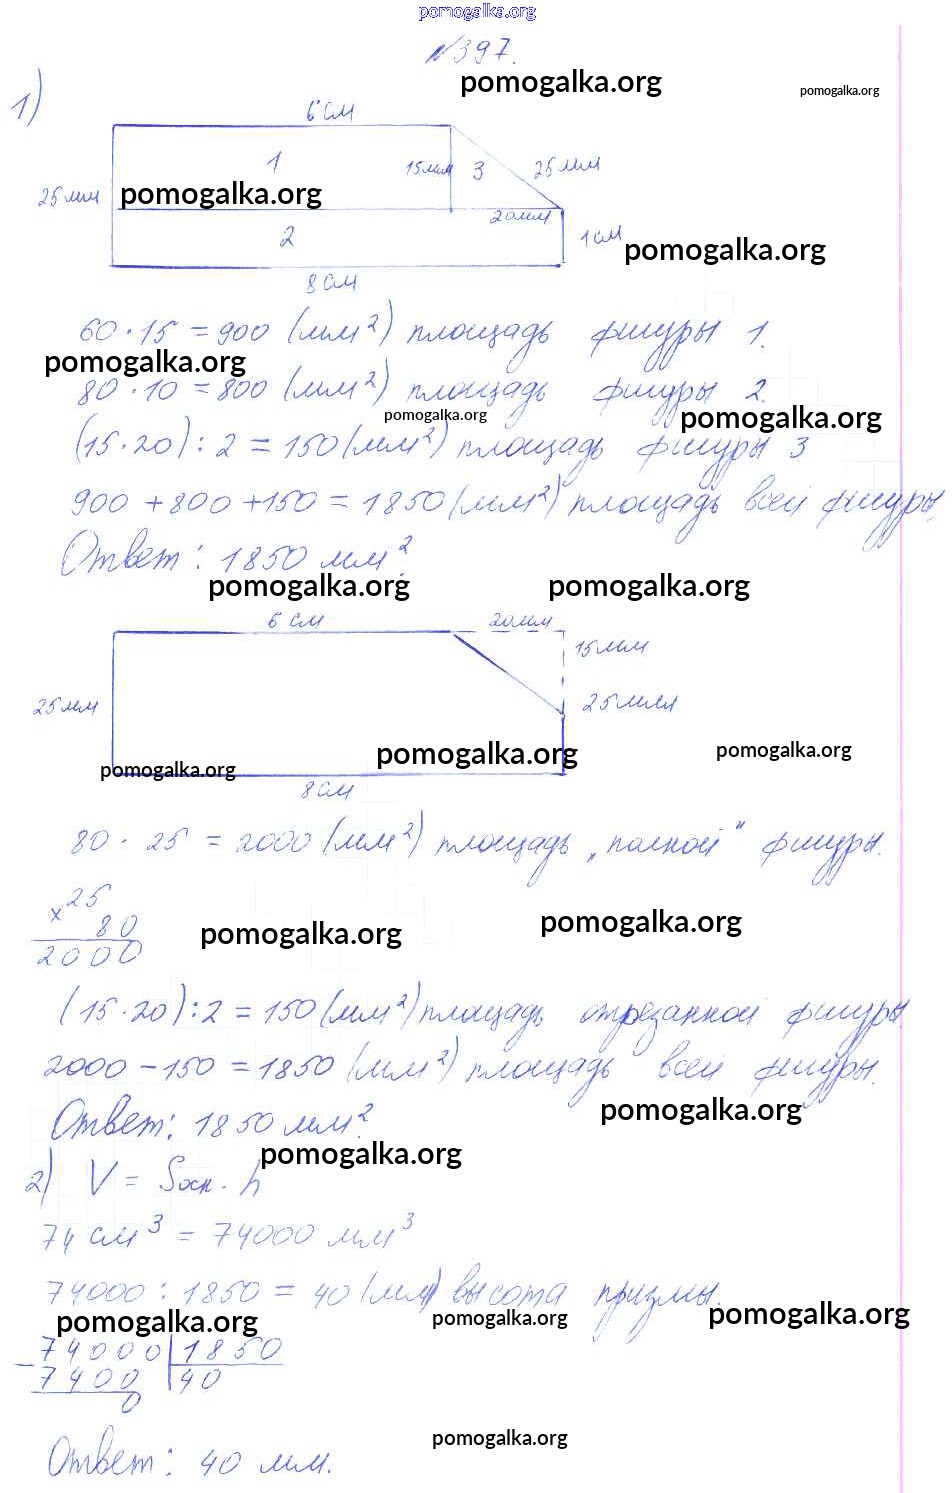 pomogalka.org
№397.
pomogalka.org
pomogalka.org
1)
6 см
1
15мм
3
25мм
25мм
pomogalka.org
20мм
2
1см
pomogalka.org
8 см
60 · 15 = 900 (мм²) площадь фигуры 1.
pomogalka.org
80 · 10 = 800 (мм²) площадь фигуры 2.
pomogalka.org
pomogalka.org
(15 · 20) : 2 = 150 (мм²) площадь фигуры 3
900 + 800 + 150 = 1850 (мм²) площадь всей фигуры.
Ответ: 1850 мм².
pomogalka.org
pomogalka.org
6 см
20мм
15мм
25мм
25мм
pomogalka.org
pomogalka.org
pomogalka.org
8см
80 · 25 = 2000 (мм²) площадь „полной" фигуры.
х 25
80
2000
pomogalka.org
pomogalka.org
(15 · 20) : 2 = 150 (мм²) площадь отрезанной фигуры.
2000 – 150 = 1850 (мм²) площадь всей фигуры.
Ответ: 1850 мм².
pomogalka.org
pomogalka.org
2) V = Sосн. h
74 см³ = 74000 мм³
74000 : 1850 = 40 (мм) высота призмы.
pomogalka.org
pomogalka.org
pomogalka.org
– 74000 | 1850
7400 | 40
0
pomogalka.org
Ответ: 40 мм.